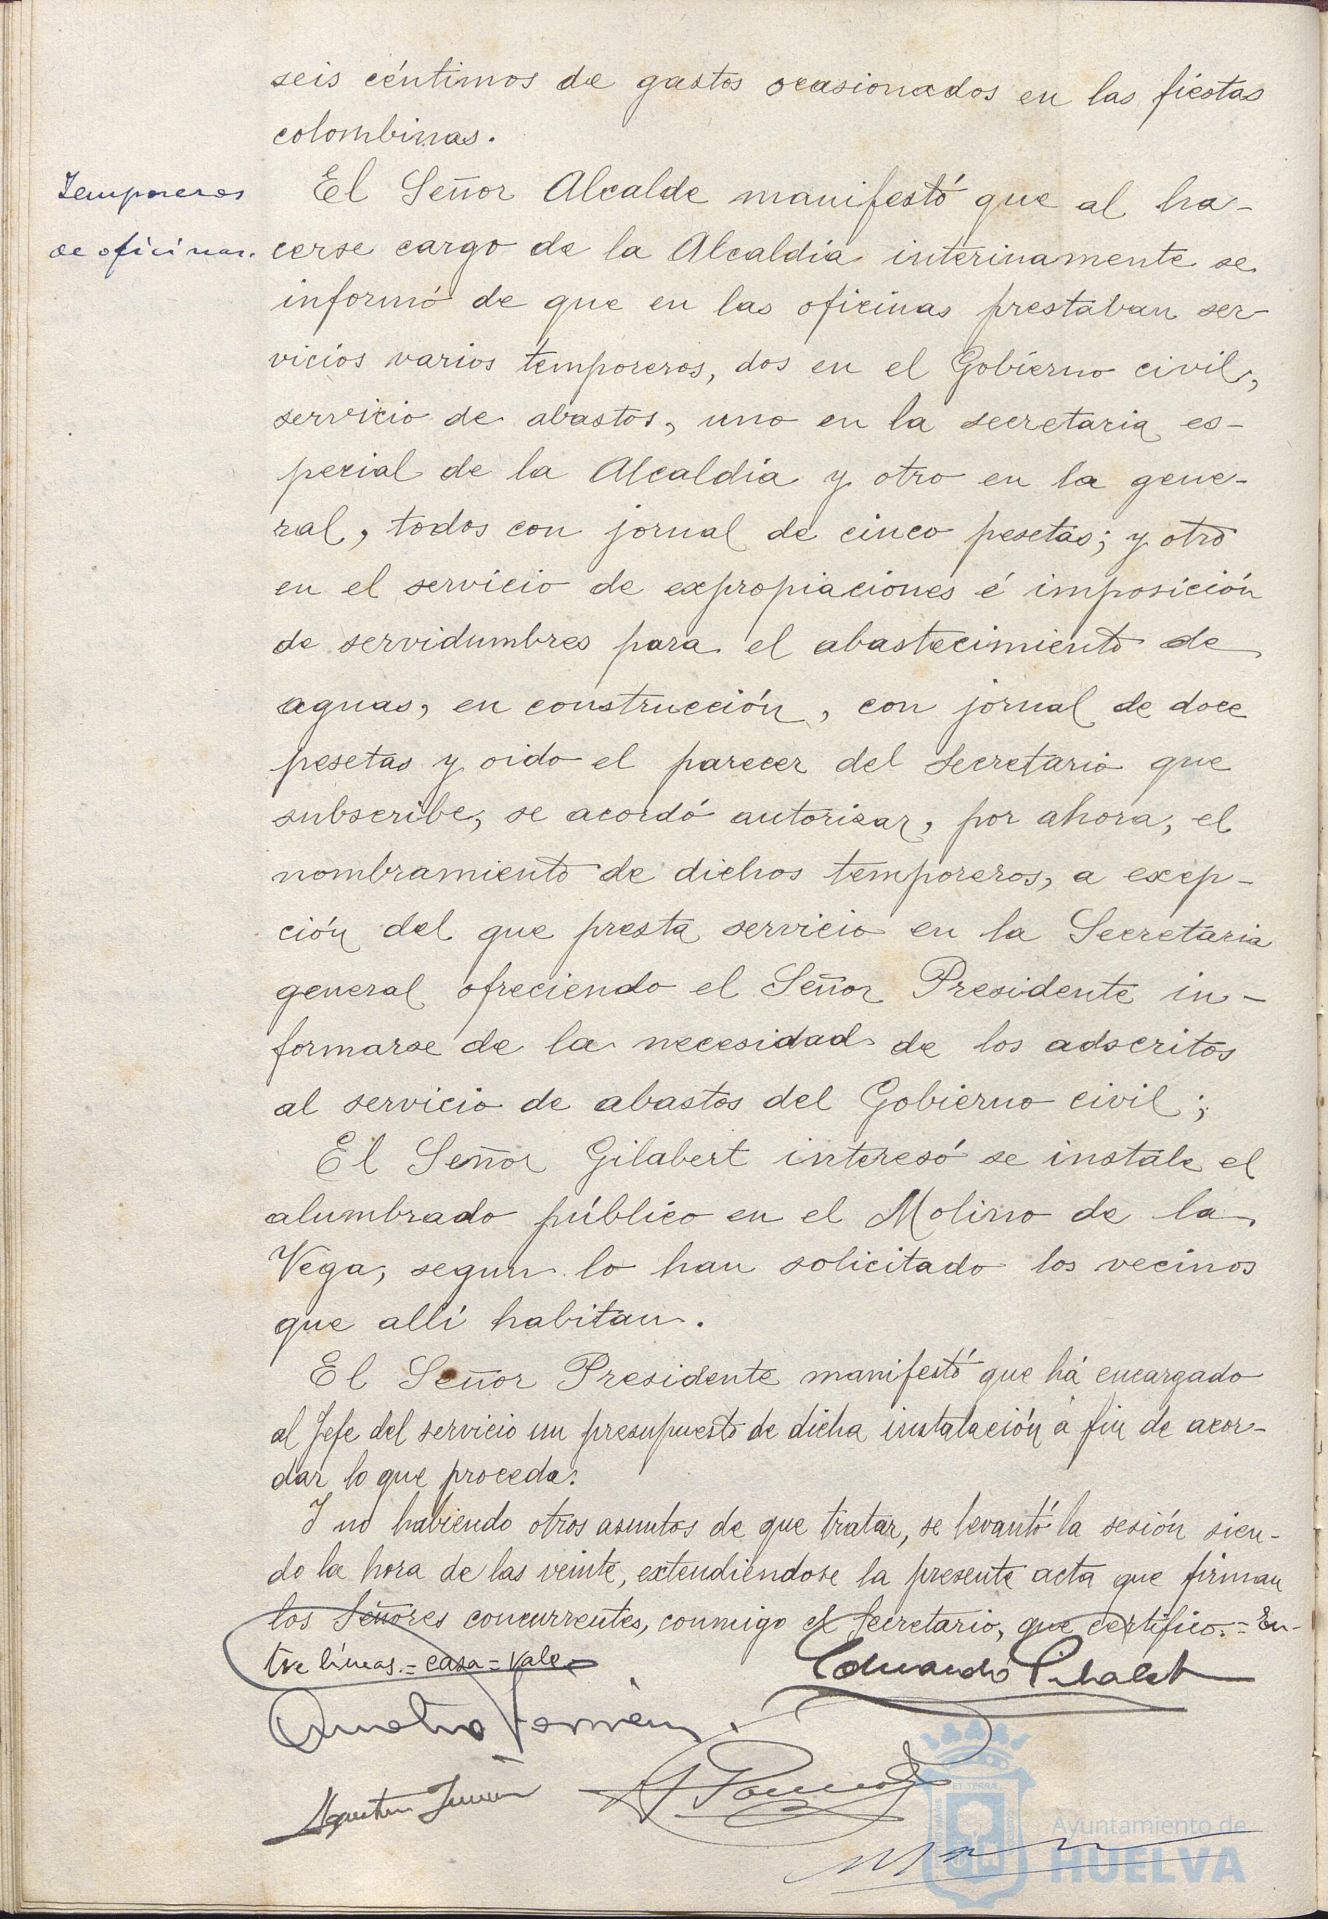 seis céntimos de gastos ocasionados en las fiestas
colombinas.
Temporeros
de oficinas.
El Señor Alcalde manifestó que al ha-
cerse cargo de la Alcaldía interinamente se
informó de que en las oficinas prestaban ser-
vicios varios temporeros, dos en el Gobierno civil,
servicio de abastos, uno en la secretaria es-
pecial de la Alcaldía y otro en la gene-
ral, todos con jornal de cinco pesetas; y otro
en el servicio de expropiaciones é imposición
de servidumbres para el abastecimiento de
aguas, en construcción, con jornal de doce
pesetas y oido el parecer del Secretario que
subscribe, se acordó autorizar, por ahora, el
nombramiento de dichos temporeros, a excep-
ción del que presta servicio en la Secretaria
general ofreciendo el Señor Presidente in-
formarse de la necesidad de los adscritos
al servicio de abastos del Gobierno civil;
El Señor Gilabert interesó se instale el
alumbrado público en el Molino de la
Vega, segun lo han solicitado los vecinos
que allí habitan.
El Señor Presidente manifestó que há encargado
al Jefe del servicio un presupuesto de dicha instalación á fin de acor-
dar lo que proceda.
Y no habiendo otros asuntos de que tratar, se levantó la sesión sien-
do la hora de las veinte, extendiéndose la presente acta que firman
los Señores concurrentes, conmigo el Secretario, que certifico.=En-
tre líneas.=casa=Vale
Eduardo Gilabert
Agustin
ET TERRÆ
Ayuntamiento de
HUELVA